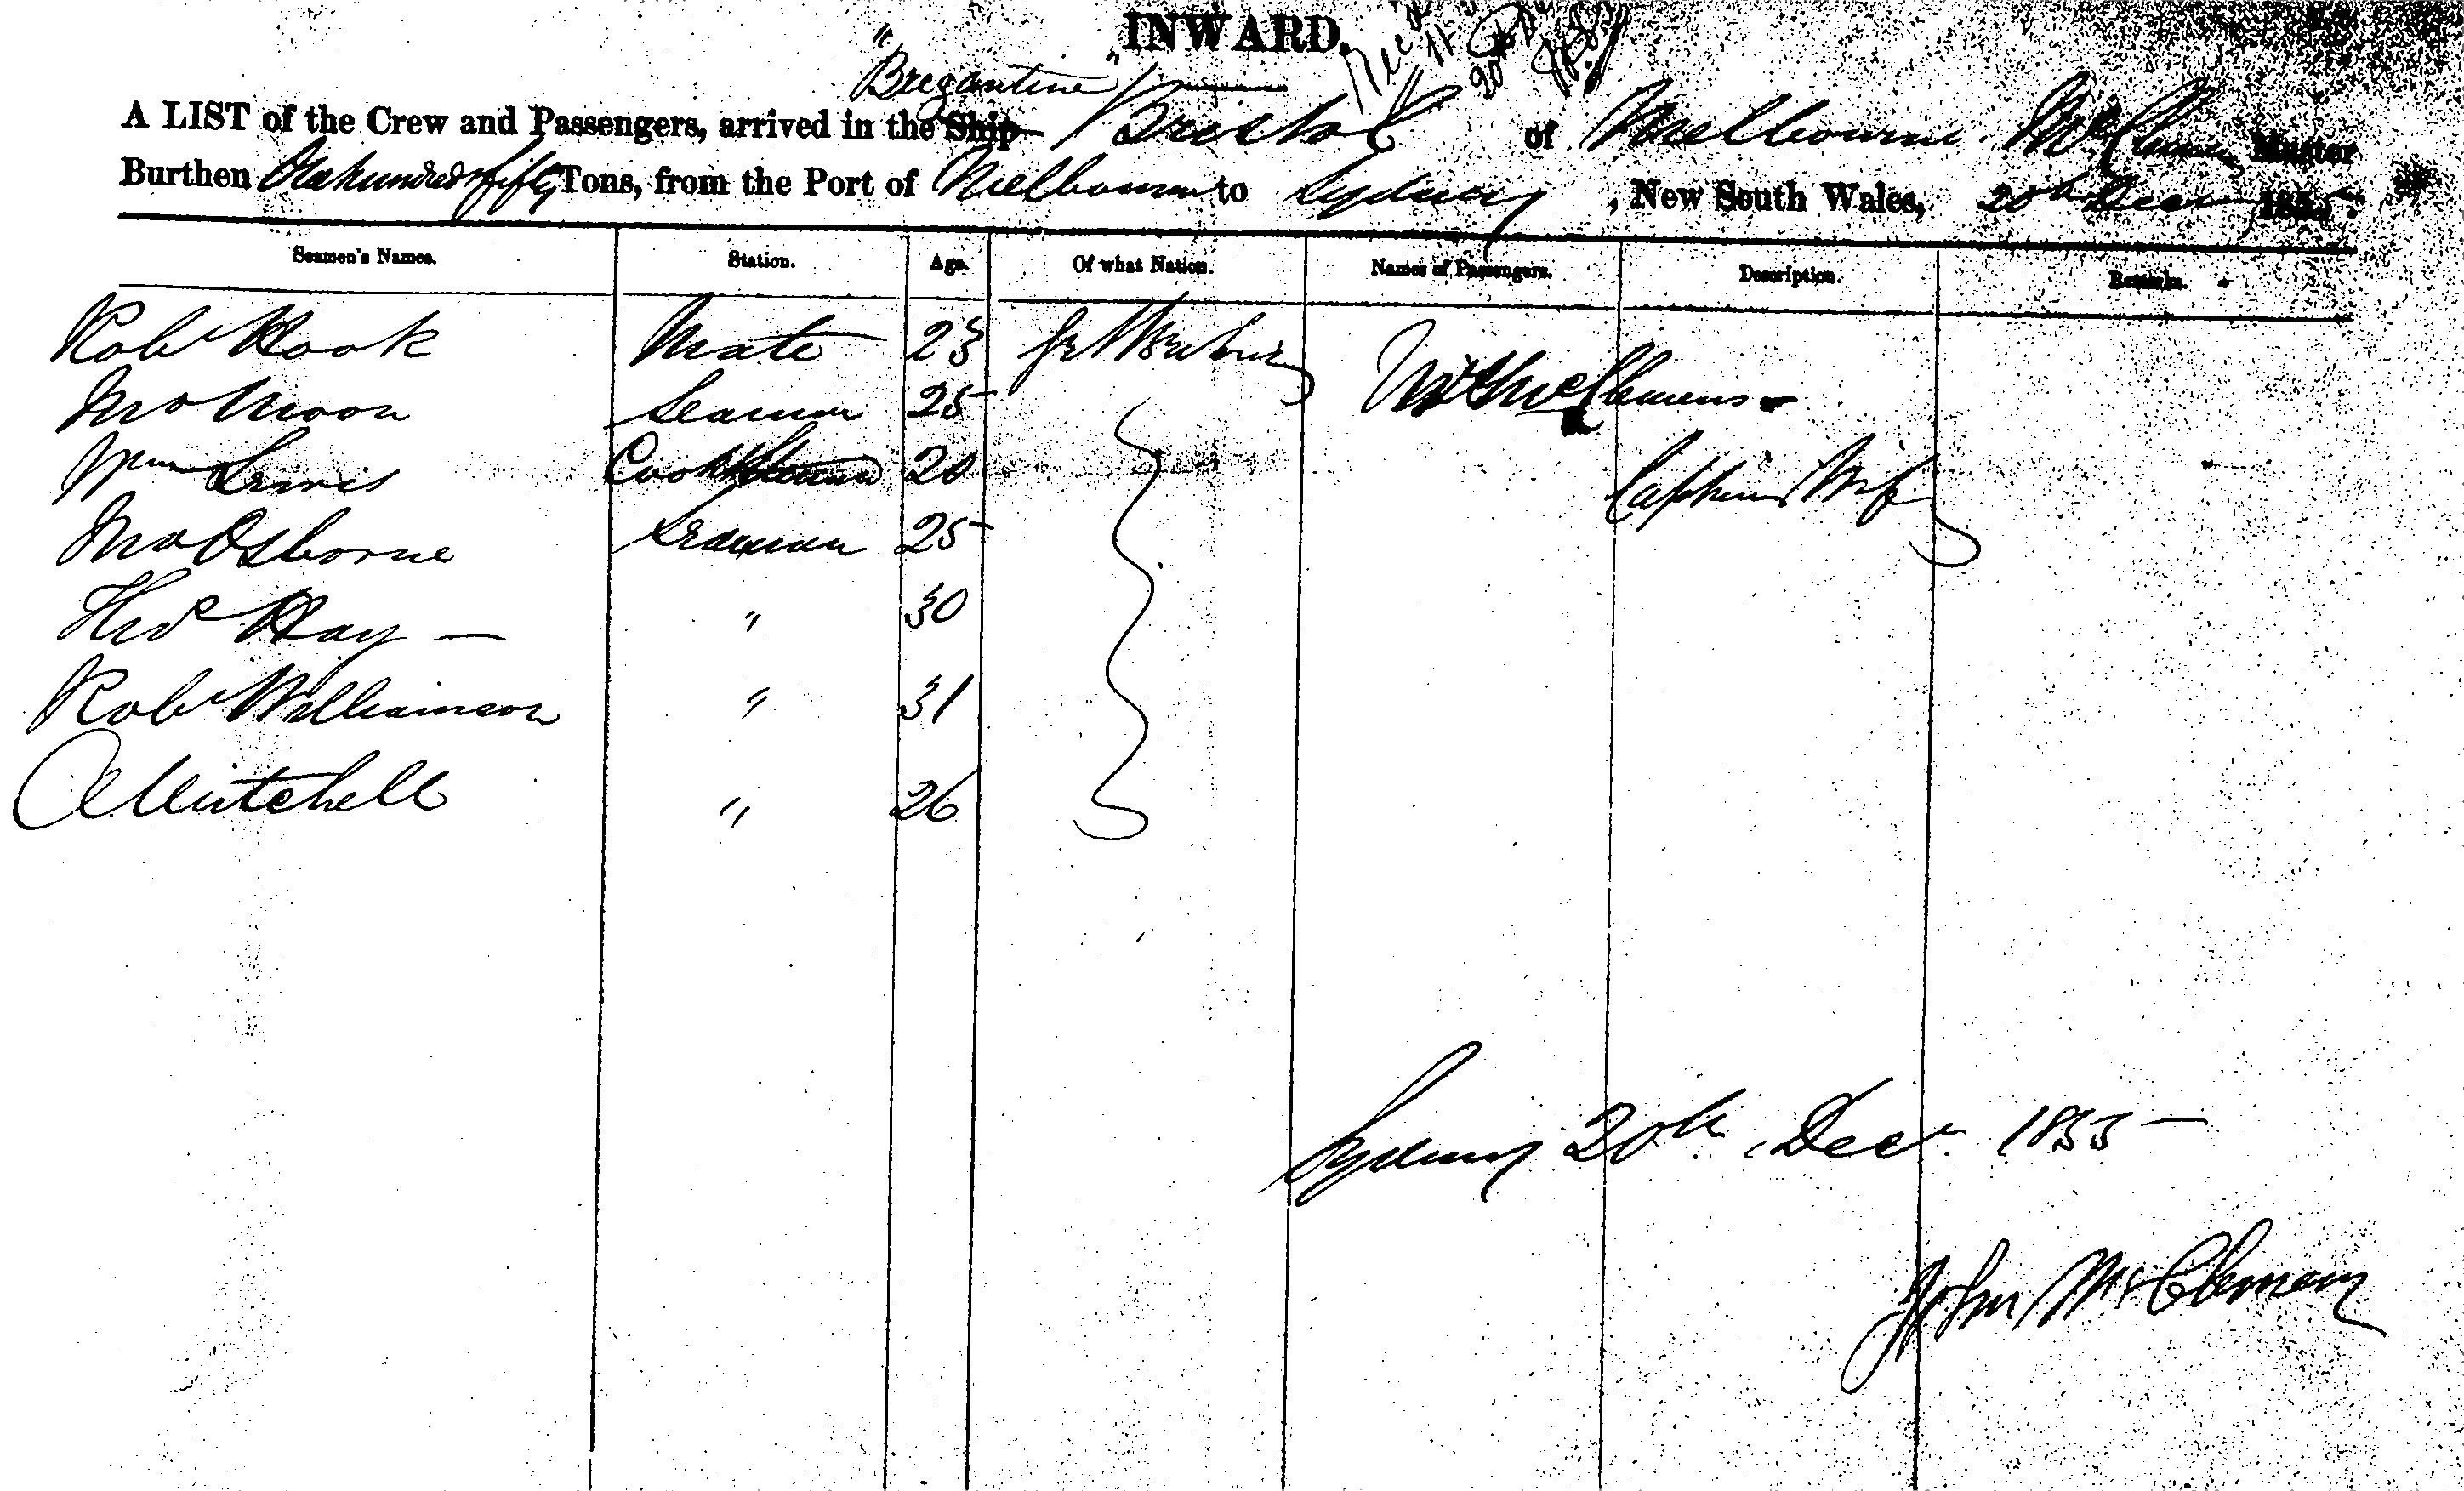 INWARD.
"Bregantine"
A LIST of the Crew and Passengers, arrived in the Ship Bristol of Melbourne. McClemens Master
Burthen One hundred & fifty Tons, from the Port of Melbourne to Sydney, New South Wales, 20th Decr 1855.
Seamen's Names. Station. Age. Of what Nation. Names of Passengers. Description. Remarks.
Robt Hook Mate 23 Gt Britain
Jno Moon Seaman 25 McClemens
Wm Lewis Cook 20 Captains Wife
Jno Osborne Seaman 25
Thos Hay — " 30
Robt Williamson " 31
A Mitchell " 26
Sydney 20th Decr 1855
John McClemens